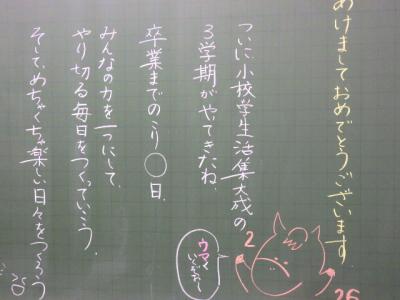 あけましておめでとうございます
ついに小校学生活集大成の
3学期がやってきたね。
卒業までのこり○日。
みんなの力を一つにして、
やり切る毎日をつくっていこう。
そして、めちゃくちゃ楽しい日々をつくろう
2
26
ウマく